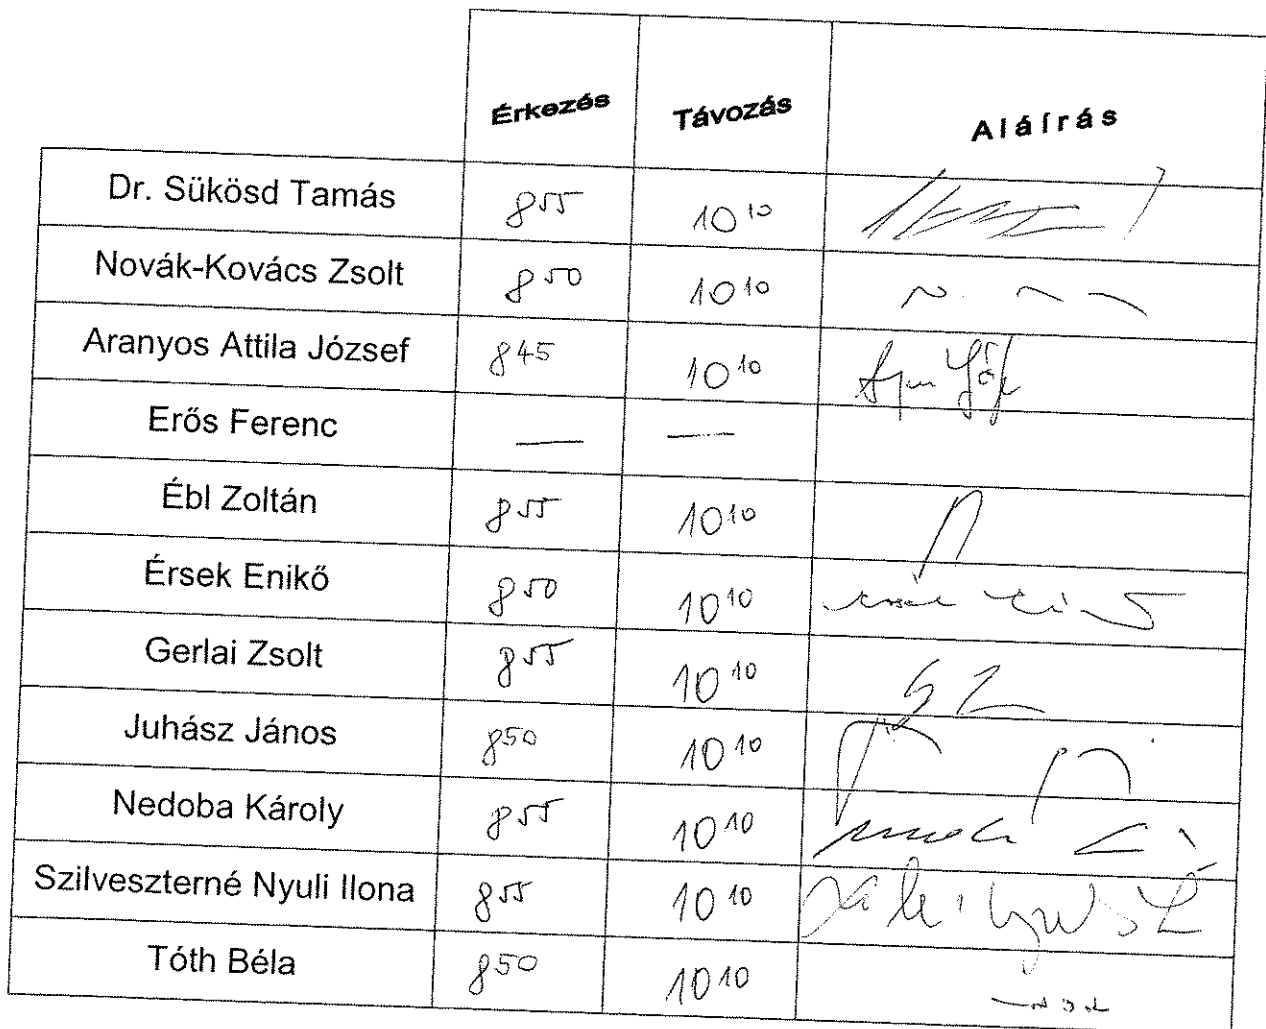 Érkezés Távozás Aláírás
Dr. Sükösd Tamás 8 55 10 10
Novák-Kovács Zsolt 8 50 10 10
Aranyos Attila József 8 45 10 10
Erős Ferenc — —
Ébl Zoltán 8 55 10 10
Érsek Enikő 8 50 10 10
Gerlai Zsolt 8 55 10 10 GZ
Juhász János 8 50 10 10
Nedoba Károly 8 55 10 10
Szilveszterné Nyuli Ilona 8 55 10 10
Tóth Béla 8 50 10 10